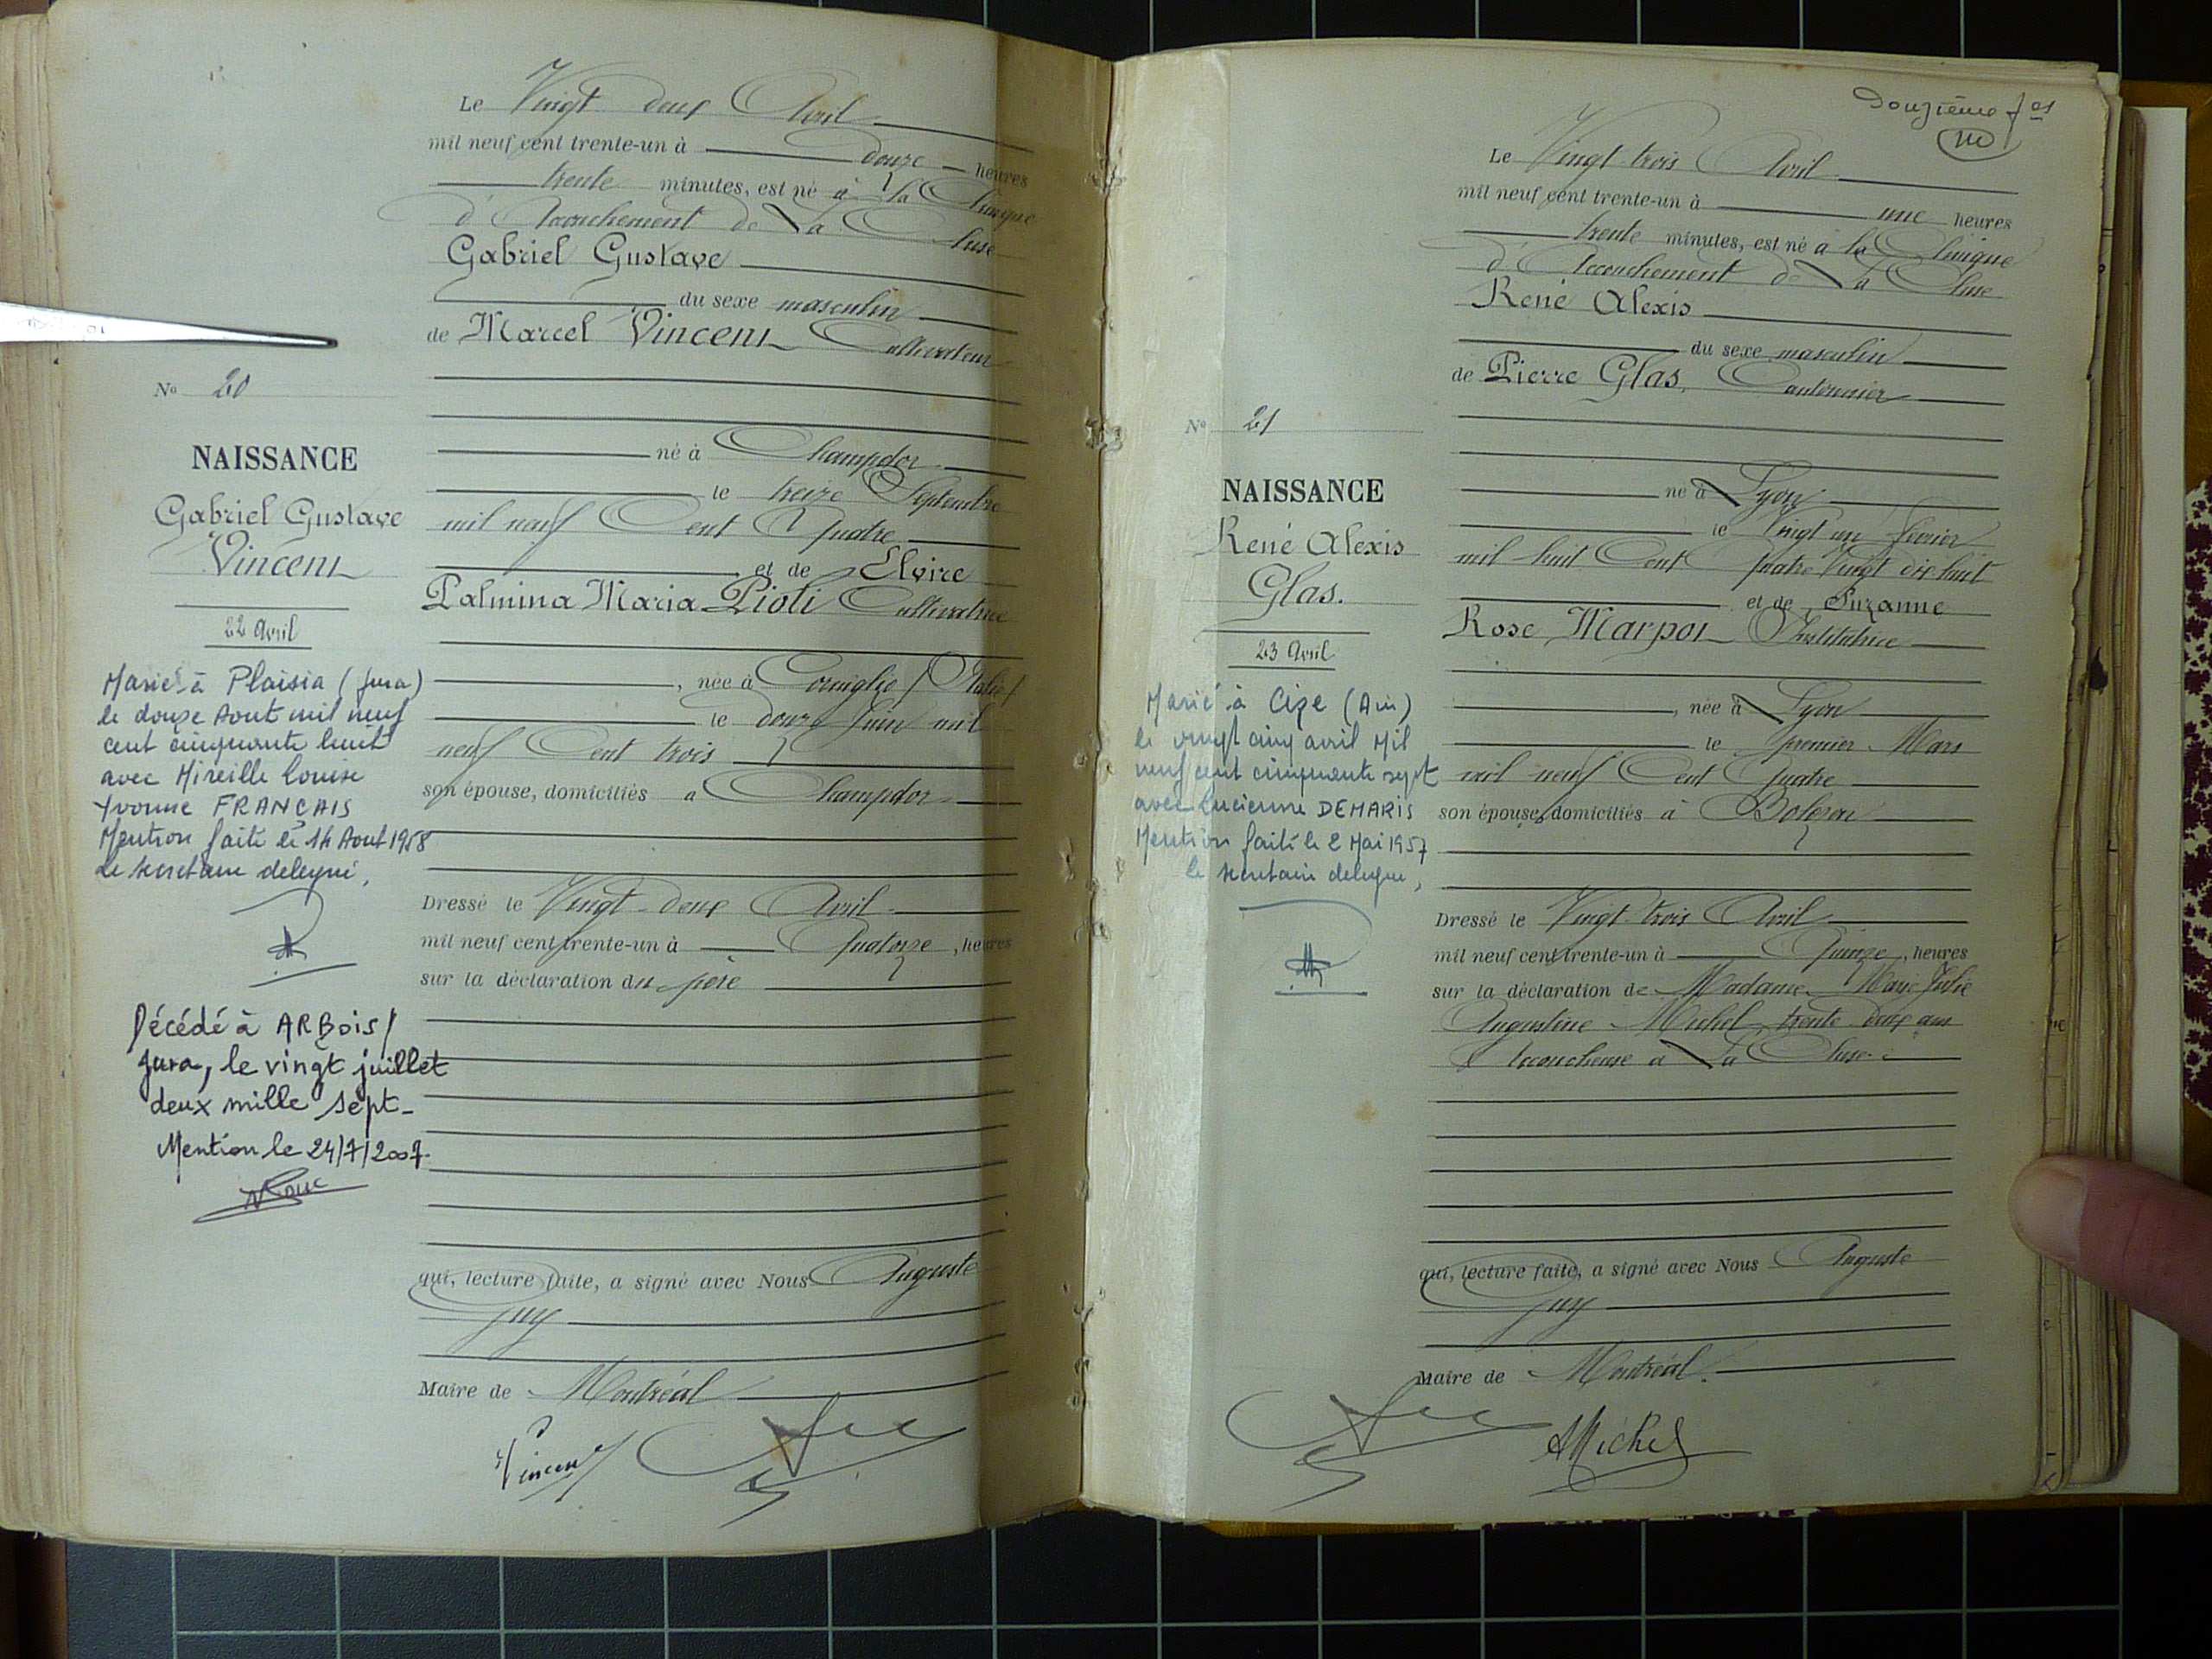 Le Vingt deux Avril
mil neuf cent trente-un à douze heures
trente minutes, est né à la Clinique
d'Accouchement de La Cluse
Gabriel Gustave
du sexe masculin
de Marcel Vincent Cultivateur
né à Champdor
le treize Septembre
mil neuf Cent Quatre
et de Elvire
Palmina Maria Pioli Cultivatrice
, née à Corniglio (Italie)
le douze Juin mil
neuf Cent trois
son épouse, domiciliés a Champdor
Dressé le Vingt-deux Avril
mil neuf cent trente-un à Quatorze, heures
sur la déclaration du père
qui, lecture faite, a signé avec Nous Auguste
Juy
Maire de Montréal
Vincent
No 20
NAISSANCE
Gabriel Gustave
Vincent
22 Avril
Marié à Plaisia (Jura)
le douze Aout mil neuf
cent cinquante huit
avec Mireille Louise
Yvonne FRANÇAIS
Mention faite le 14 Aout 1958
Le secretaire delegué,
Décédé à ARBois/
Jura, le vingt juillet
deux mille sept-
Mention le 24/7/2007.
Douzième fos
Le Vingt trois Avril
mil neuf cent trente-un à une heures
trente minutes, est né à la Clinique
d'Accouchement de La Cluse
René Alexis
du sexe masculin
de Pierre Glas, Cantonnier
né à Lyon
le Vingt un février
mil huit Cent quatre Vingt dix huit
et de Suzanne
Rose Marpot Institutrice
, née à Lyon
le premier Mars
mil neuf Cent Quatre
son épouse, domiciliés à Bolozon
Dressé le Vingt trois Avril
mil neuf cent trente-un à Quinze, heures
sur la déclaration de Madame Marie Julie
Augustine Michel, trente deux ans
Accoucheuse à La Cluse
qui, lecture faite, a signé avec Nous Auguste
Juy
Maire de Montréal.
AMichel
No 21
NAISSANCE
René Alexis
Glas.
23 Avril
Marié à Cize (Ain)
le vingt cinq avril Mil
neuf cent cinquante sept
avec Lucienne DEMARIS
Mention faite le 2 Mai 1957
le secretaire delegue,